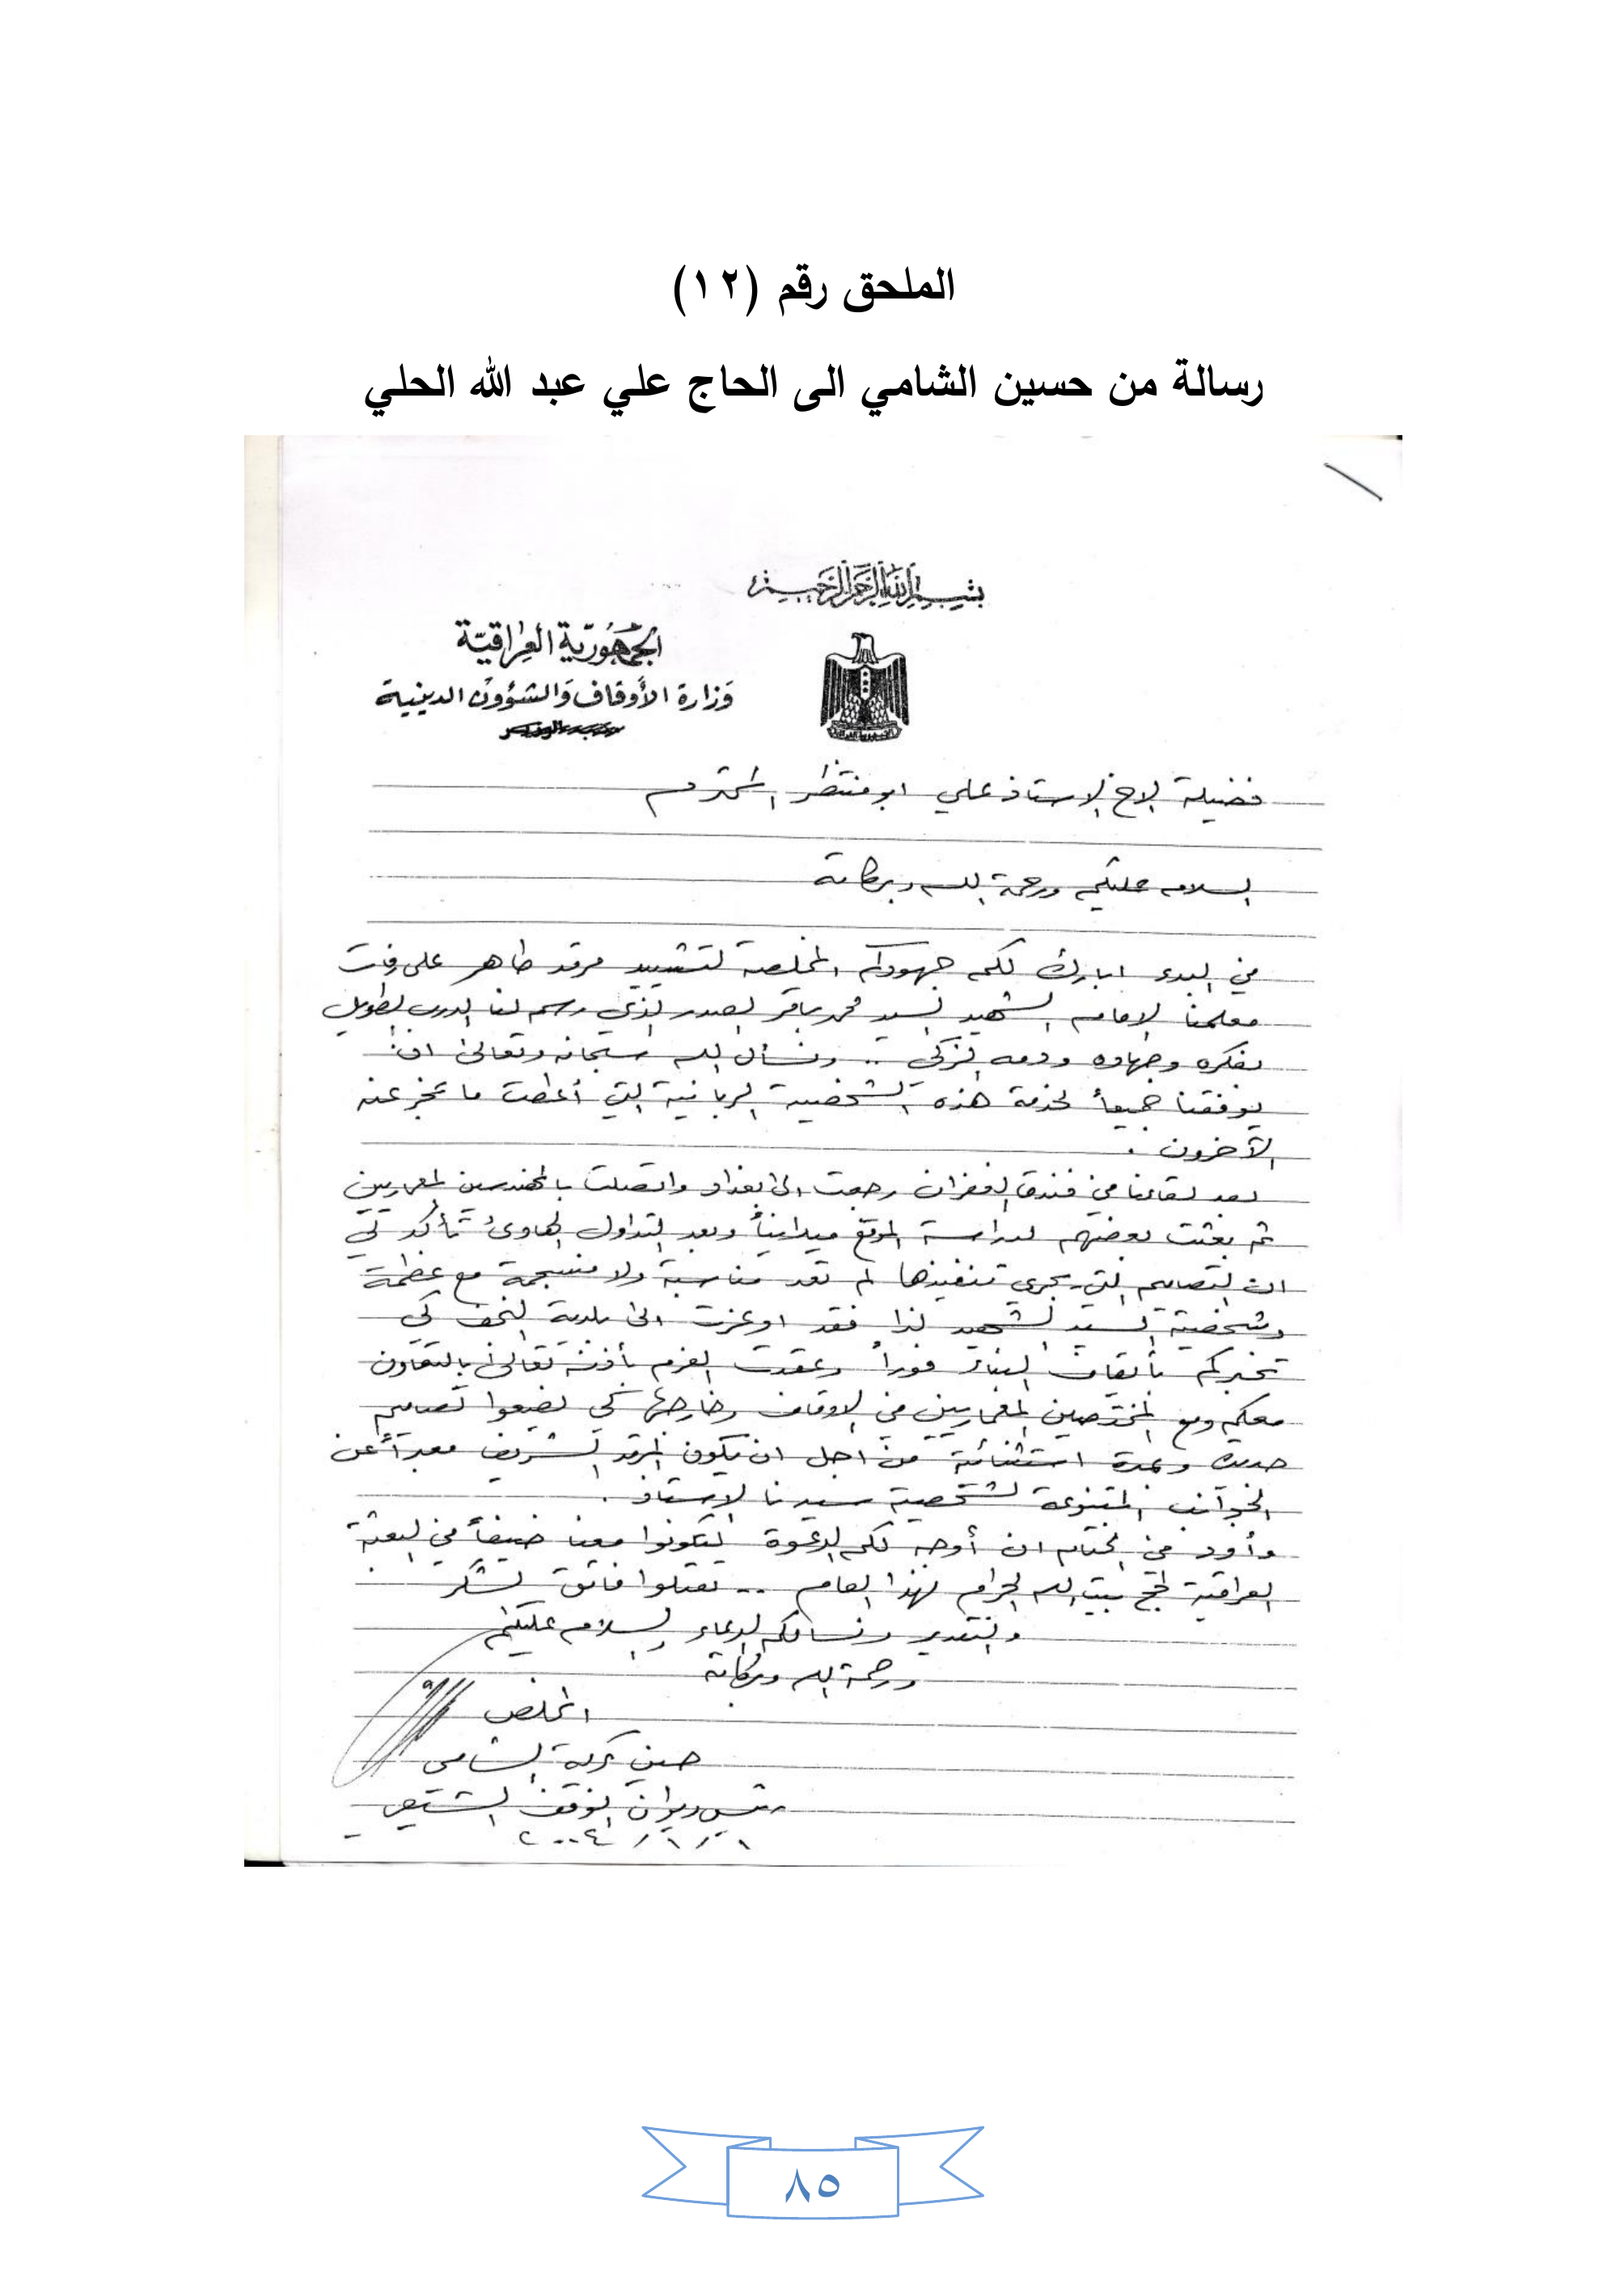 الملحق رقم (١٢)
رسالة من حسين الشامي الى الحاج علي عبد الله الحلي
بسم الله الرحمن الرحيم
الجمهورية العراقية
وزارة الأوقاف والشؤون الدينية
فضيلة الاخ الاستاذ علي ابو منتظر المحترم
السلام عليكم ورحمة الله وبركاته
في البدء ابارك لكم جهودكم المخلصة لتشييد مرقد طاهر على رفات
معلمنا الامام الشهيد السيد محمد باقر الصدر الذي رسم لنا الدرب الطويل
بفكره وجهاده ودمه الزكي .. ونسأل الله سبحانه وتعالى ان
يوفقنا جميعاً لخدمة هذه الشخصية الربانية التي أعطت ما عجز عنه
الآخرون .
بعد لقائنا في فندق الغفران رجعت الى بغداد واتصلت بالمهندسين المعماريين
ثم بعثت بعضهم لدراسة الموقع ميدانياً وبعد التداول الهادئ تأكد لي
ان التصاميم التي يجري تنفيذها لم تعد مناسبة ولا منسجمة مع عظمة
وشخصية السيد الشهيد لذا فقد اوعزت الى بلدية النجف كي
تخبركم بأيقاف البناء فوراً وعقدت العزم بأذنه تعالى بالتعاون
معكم ومع المختصين المعماريين في الاوقاف وخارجها كي يضعوا تصاميم
جديدة استثنائية من اجل ان يكون المرقد الشريف معبراً عن
الجوانب المتنوعة لشخصية سيدنا الاستاذ .
وأود في الختام ان أوجه لكم الدعوة لتكونوا معنا ضيفاً في البعثة
العراقية لحج بيت الله الحرام لهذا العام .. تقبلوا فائق الشكر
والتقدير ونسألكم الدعاء والسلام عليكم
ورحمة الله وبركاته
المخلص
حسين بركة الشامي
رئيس ديوان الوقف الشيعي
١/١/٢٠٠٤
٨٥